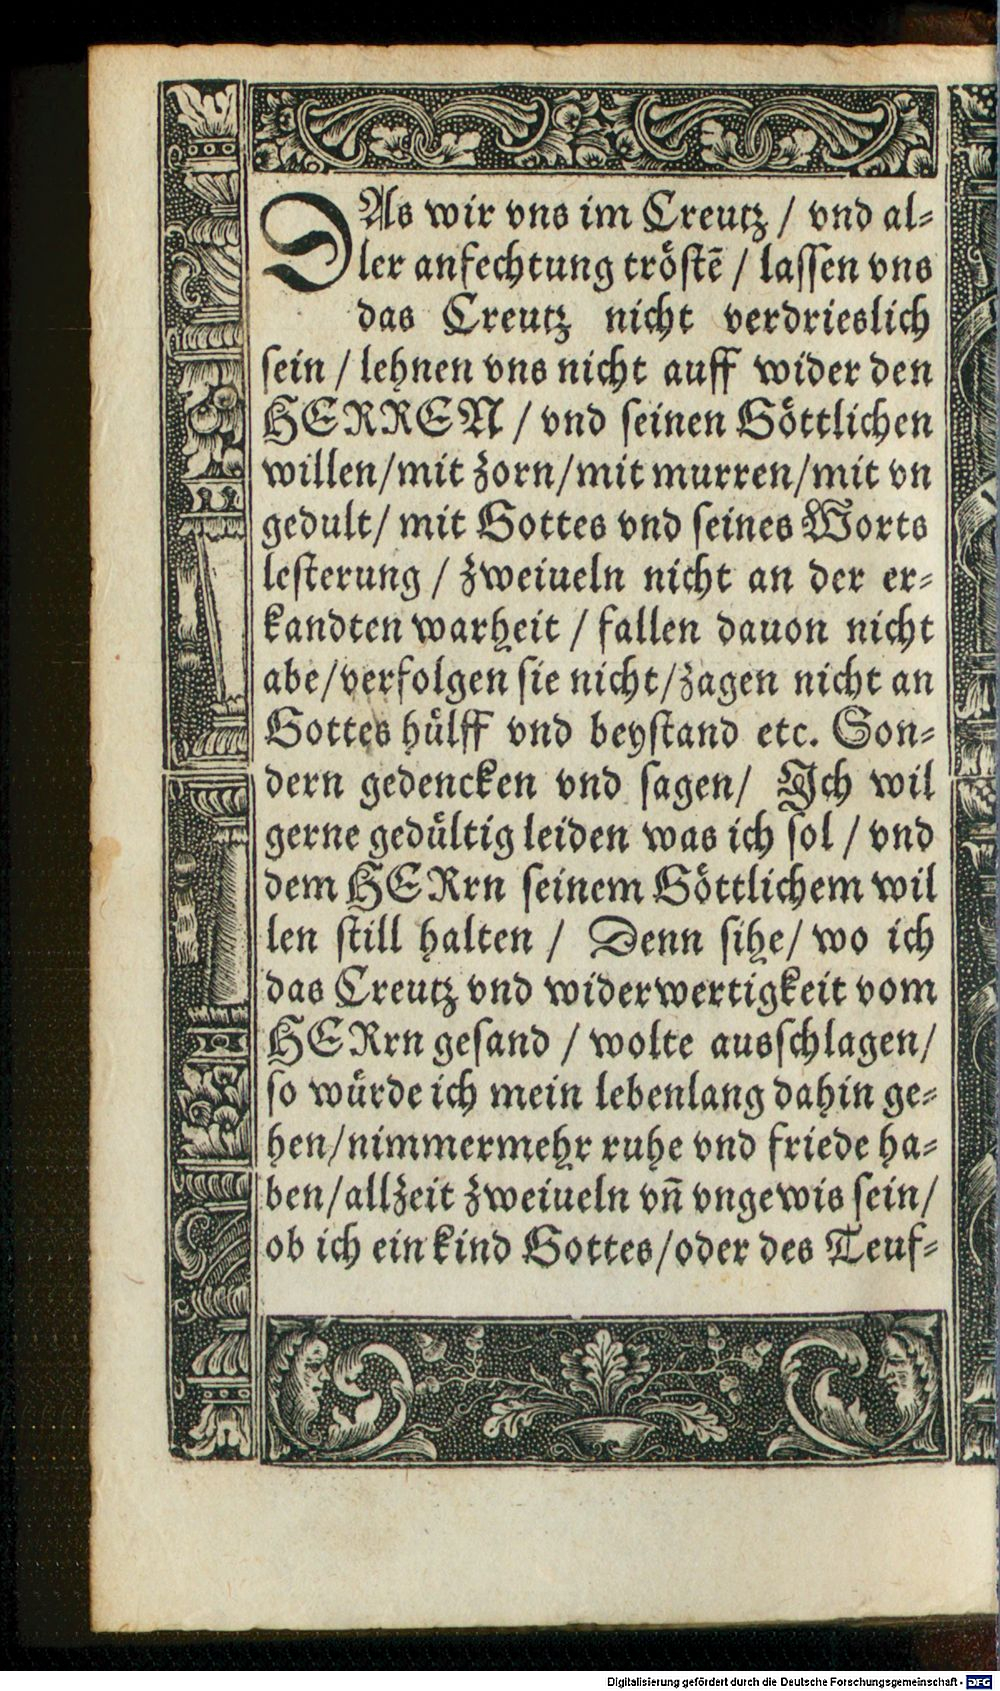 DAs wir vns im Creutz / vnd al-
ler anfechtung tröstē / lassen vns
das Creutz nicht verdrieslich
sein / lehnen vns nicht auff wider den
HERREN / vnd seinen Göttlichen
willen/mit zorn/mit murren/mit vn
gedult/ mit Gottes vnd seines Worts
lesterung / zweiueln nicht an der er-
kandten warheit / fallen dauon nicht
abe/verfolgen sie nicht/zagen nicht an
Gottes hülff vnd beystand etc. Son-
dern gedencken vnd sagen/ Ich wil
gerne gedültig leiden was ich sol / vnd
dem HERrn seinem Göttlichem wil
len still halten / Denn sihe/ wo ich
das Creutz vnd widerwertigkeit vom
HERrn gesand / wolte ausschlagen/
so würde ich mein lebenlang dahin ge-
hen/nimmermehr ruhe vnd friede ha-
ben/allzeit zweiueln vn̄ vngewis sein/
ob ich ein kind Gottes/oder des Teuf-
Digitalisierung gefördert durch die Deutsche Forschungsgemeinschaft - DFG